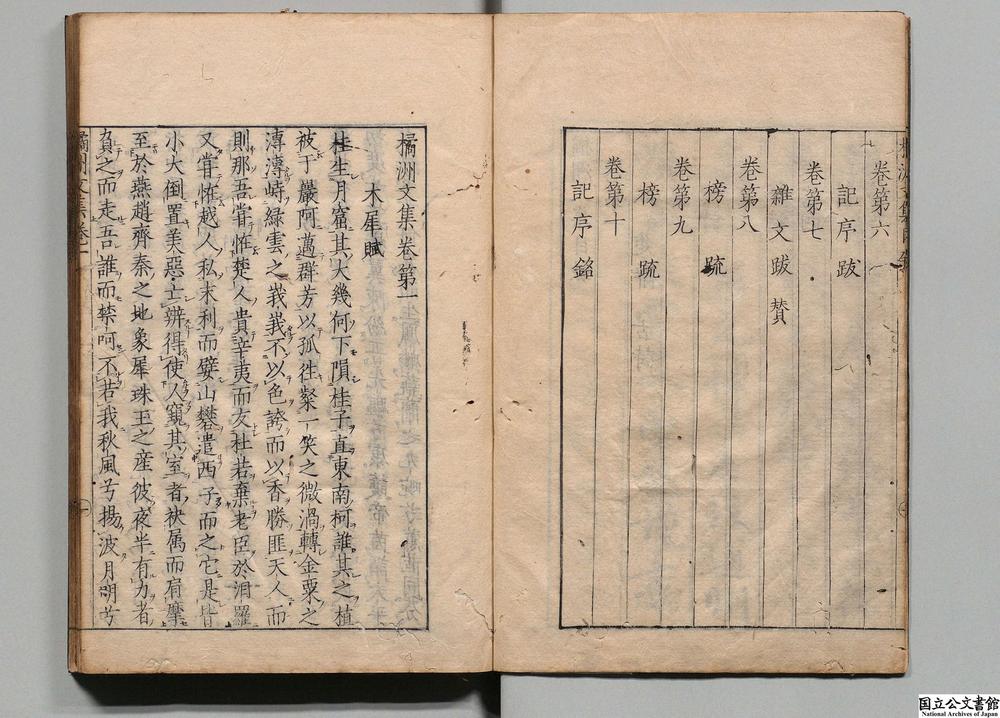 卷第六
記序跋
卷第七
雜文跋賛
卷第八
榜疏
卷第九
榜疏
卷第十
記序銘
橘洲文集卷第一
木犀賦
桂生月窟其大幾何下隕桂子直東南柯誰其之植
被于巖阿邁群芳以孤徃粲一笑之微渦轉金粟之
漙漙峙緑雲之峩峩不以色誇而以香勝匪天人而
則那吾甞恠楚人貴辛夷而友杜若棄老臣於汨羅
又甞恠越人私末利而嬖山礬遣西子而之它是皆
小大倒置美惡士辨得使人窺其室者袂属而肩摩
至於燕趙齊秦之地象犀珠玉之産彼夜半有力者
負之而走吾誰而禁呵不若我秋風兮揚波月明兮
橘洲文集卷一
国立公文書館
National Archives of Japan